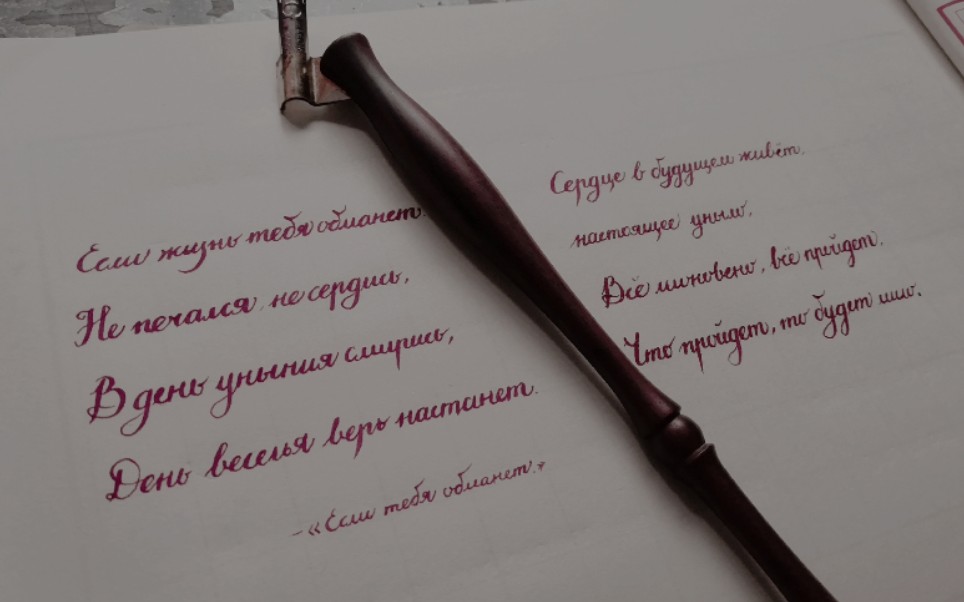 Если жизнь тебя обманет.
Не печался, не сердись,
В день уныния смирись,
День веселья верь настанет.
– «Если тебя обманет.»
Сердце в будущем живёт.
настоящее уныло,
Всё мгновено, всё пройдет,
Что пройдет, то будет мило.